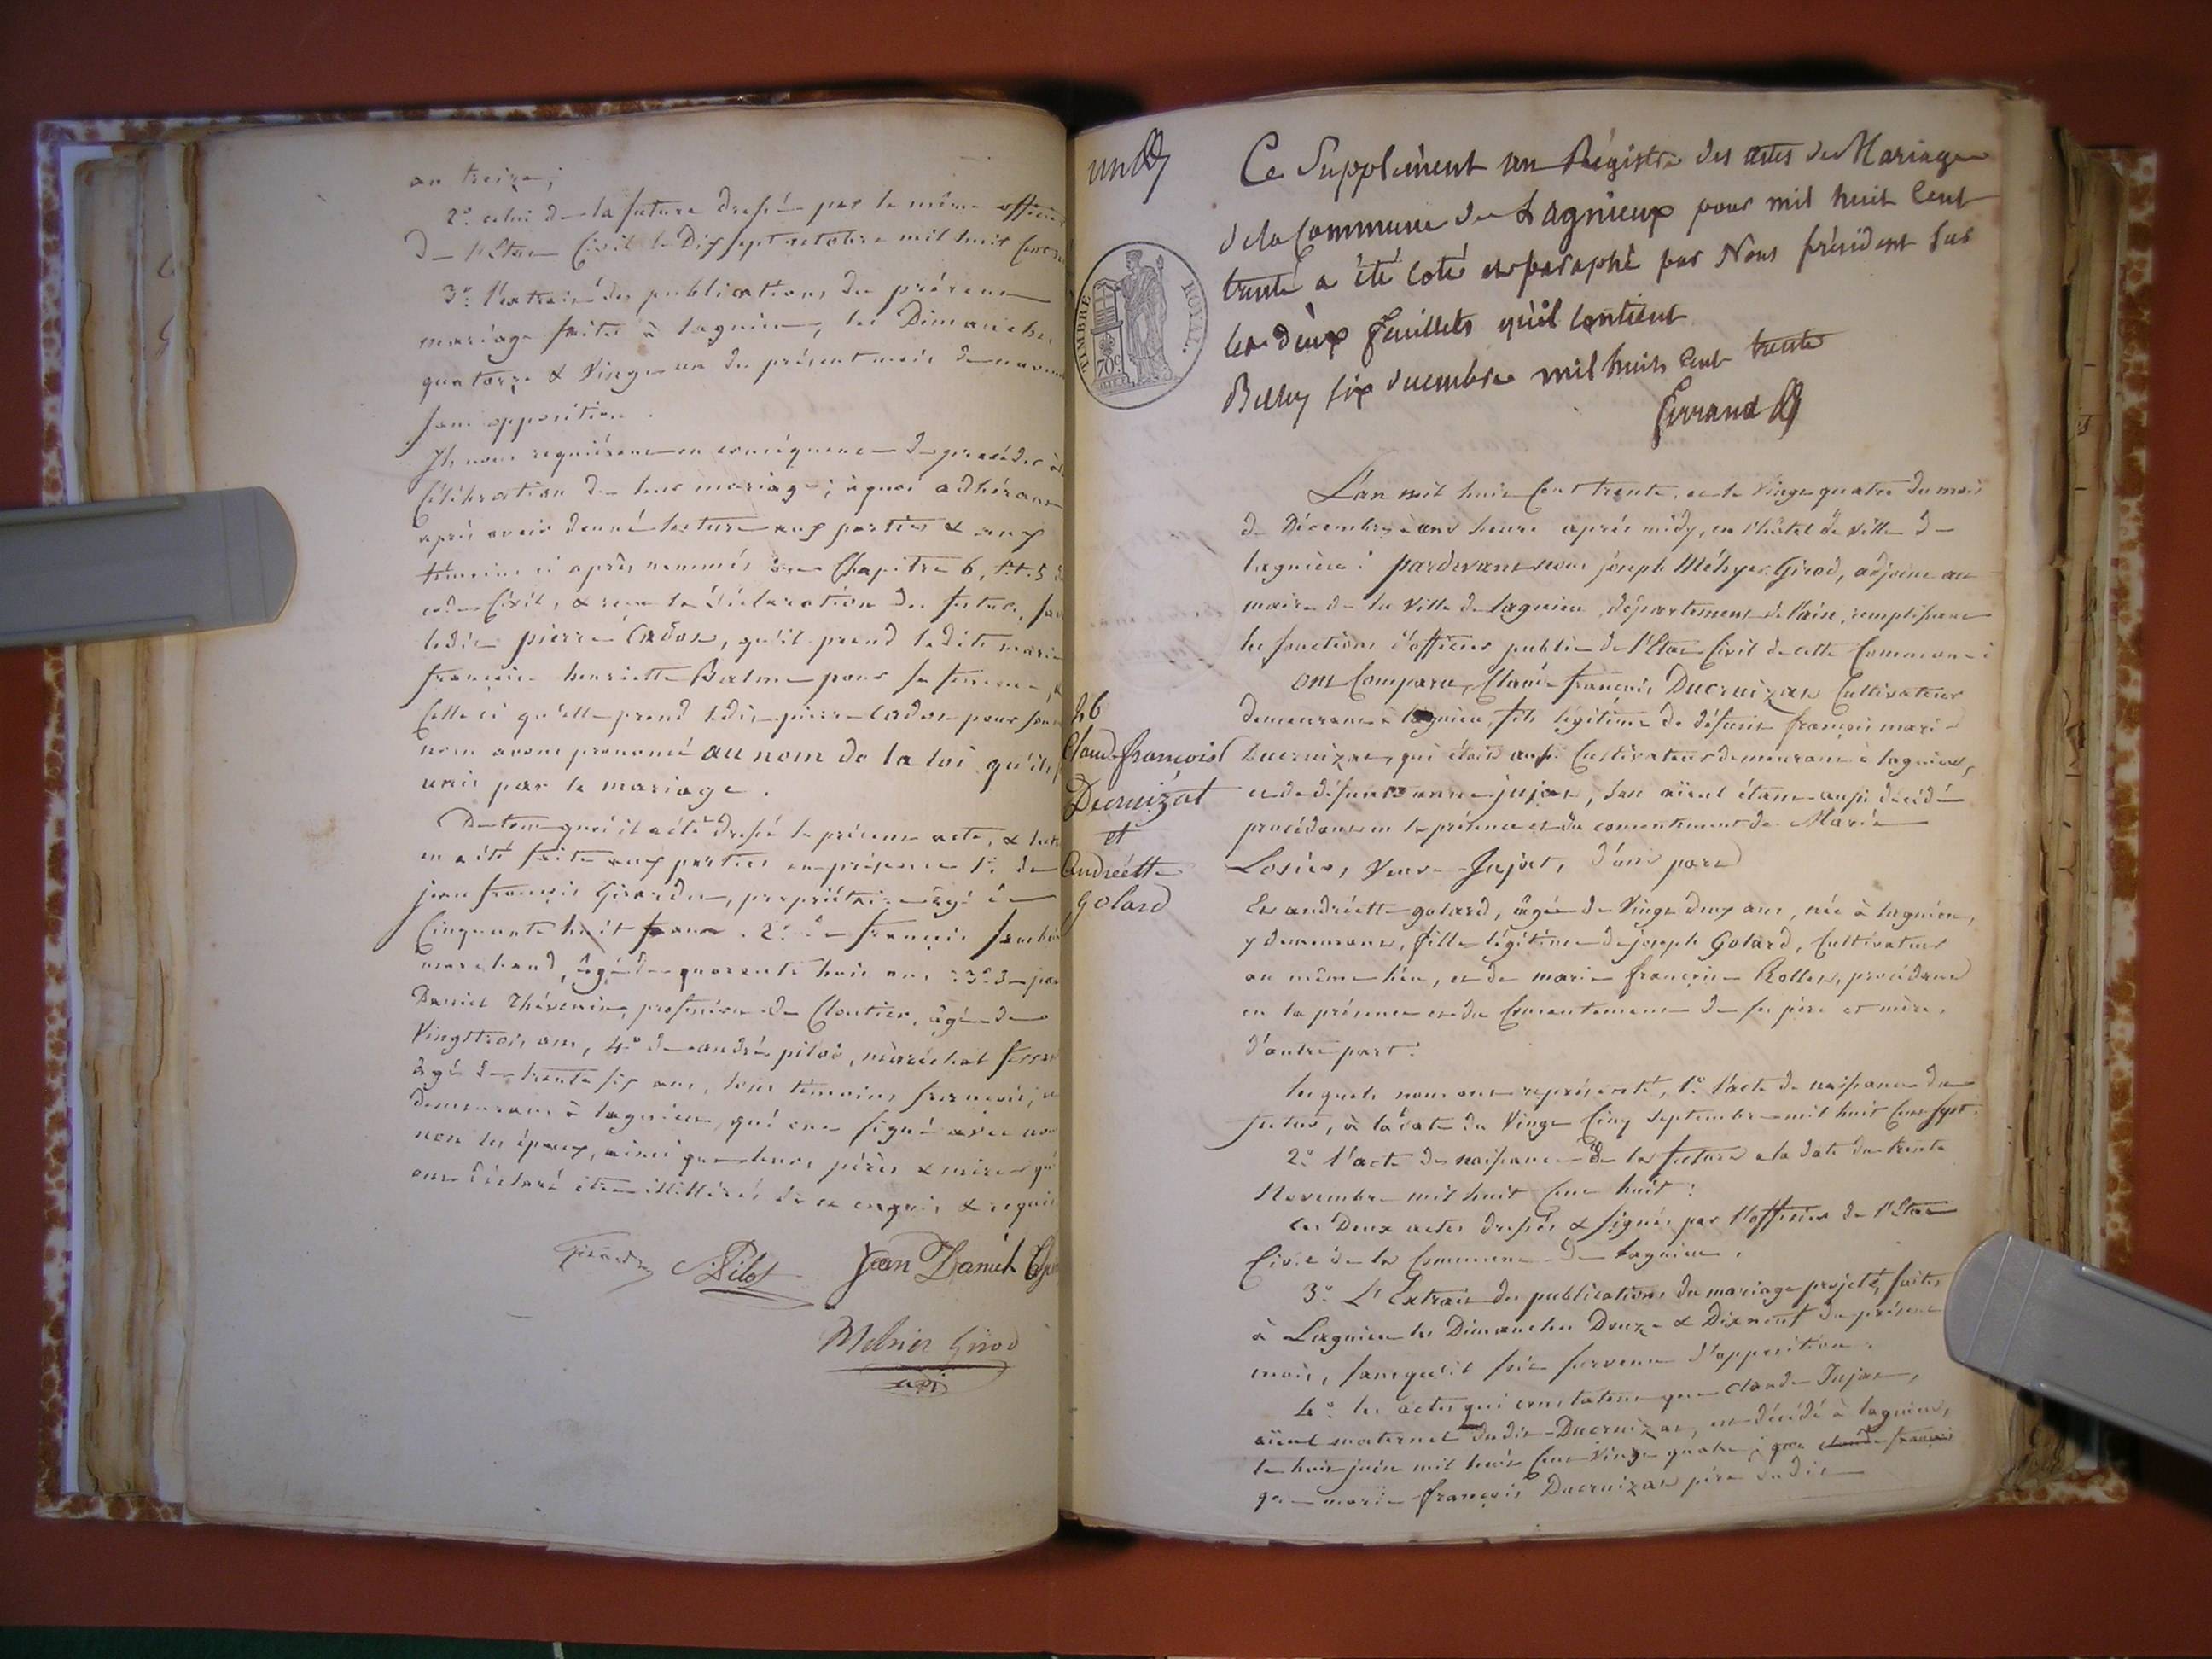 an treize;
2º celui de la future dressé par le même officier
de l'Etat Civil le Dix sept octobre mil huit Cent
3º l'extrait des publications du présent
mariage faites à lagnieu, les Dimanches
quatorze & Vingt un du présent mois de novem
sans opposition.
Ils nous requièrent en conséquence de procéder à
Célébration de leur mariage; à quoi adhérant
après avoir donné lecture aux parties & aux
témoins ci après nommés du Chapitre 6, tit. 5 d
code Civil, & reçu la déclaration des futurs,
ledit pierre Cadot, qu'il prend ladite marie
françoise henriette Balme pour sa femme, &
Celle ci qu'elle prend ledit pierre Cadot pour son
nous avons prononcé au nom de la loi qu'ils s
unis par le mariage.
De tout quoi il a été dressé le présent acte, & lect
en a été faite aux parties en présence 1º de
jean françois Girardin, propriétaire âgé de
Cinquante huit ans. 2º de françois
marchand, âgé de quarante huit ans: 3º de jean
Daniel Thévenin, profession de Cloutier, âgé de
Vingt trois ans, 4º de andré pilot, maréchal ferra
âgé de trente six ans, tous témoins françois,
demeurant à lagnieu, qui ont signé avec nou
non les époux, ainsi que leurs pères & mères qui
ont déclaré être illitérés de ce enquis & requis
Girardin Pilot Jean Daniel
Méhier Girod
adj
un
Ce Supplément au Régistre des actes de Mariage
de la Commune de Lagnieux pour mil huit Cent
trente a été coté et paraphé par Nous président sur
les deux feuillets qu'il contient
Belley six decembre mil huit Cent trente
Ferrand
TIMBRE ROYAL.
70c
L'an mil huit Cent trente, et le Vingt quatre du mois
de Décembre à une heure après midy, en l'hôtel de Ville de
lagnieu: pardevant nous joseph Méhyer Girod, adjoint au
maire de la Ville de lagnieu, département de l'ain, remplissant
les fonctions d'officier public de l'Etat Civil de cette Commune:
ont Comparu, Claude françois Ducruizat Cultivateur
demeurant à lagnieu, fils légitime de défunt françois marie
Ducruizat, qui étoit aussi Cultivateur demeurant à lagnieu,
et de défunte anne jujat, son aïeul étant aussi décédé
procédant en la présence et du consentement de Marie
Losier, Veuve Jujat, d'une part
46
Claude françois
Ducruizat
et
Andréette
Golard
Et andréette golard, âgée de Vingt deux ans, née à lagnieu,
y demeurant, fille légitime de joseph Golard, Cultivateur
au même lieu, et de marie françoise Rollet, procédant
en la présence et du Consentement de ses père et mère,
d'autre part:
lesquels nous ont représenté, 1º l'acte de naissance du
futur, à la date du Vingt Cinq septembre mil huit Cent sept.
2º l'acte de naissance de la future à la date du trente
Novembre mil huit Cent huit:
les Deux actes dressés & signés par l'officier de l'Etat
Civil de la Commune de lagnieu.
3º L'Extrait des publications du mariage projeté, faites
à Lagnieu les Dimanches Douze & Dix neuf du présent
mois, sans qu'il soit survenu d'opposition.
4º les actes qui constatent que Claude Jujat,
aïeul maternel dudit Ducruizat, est décédé à lagnieu,
le huit juin mil huit Cent Vingt quatre; que claude françois
que marie françois Ducruizat père dudit